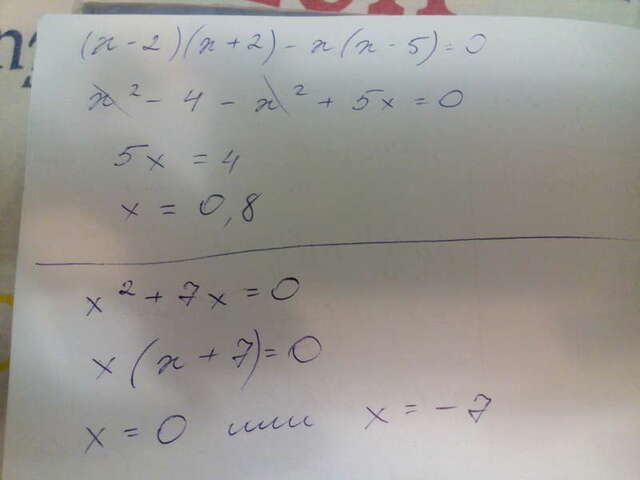 (x-2)(x+2)-x(x-5)=0
x²-4-x²+5x=0
5x=4
x=0,8
x²+7x=0
x(x+7)=0
x=0 или x=-7